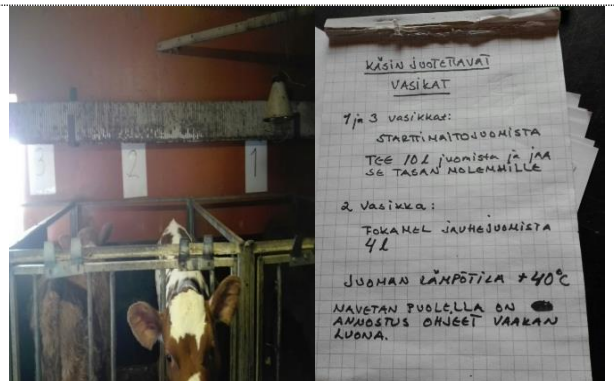 3
2
1
KÄSIN JUOTETTAVAT
VASIKAT
1 ja 3 vasikkat:
STARTTIMAITOJUOMISTA
TEE 10 L juomista ja jaa
SE TASAN MOLEMMILLE
2 Vasikka:
TOKAMEL JAUHEJUOMISTA
4 L
JUOMAN LÄMPÖTILA +40°C
NAVETAN PUOLELLA ON
ANNOSTUS OHJEET VAAKAN
LUONA.